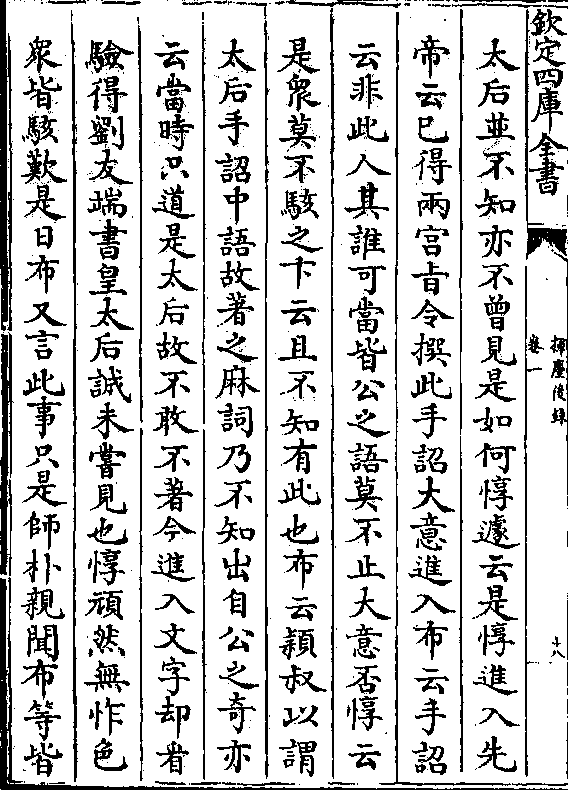 欽定四庫全書
揮麈後錄
卷一
十八
太后並不知亦不曾見是如何惇遽云是惇進入先
帝云已得兩宫㫖令撰此手詔大意進入布云手詔
云非此人其誰可當皆公之語莫不止大意否惇云
是衆莫不駭之卞云且不知有此也布云穎叔以謂
太后手詔中語故著之麻詞乃不知出自公之奇亦
云當時只道是太后故不敢不著今進入文字却看
驗得劉友端書皇太后誠未嘗見也惇頑然無怍色
衆皆駭歎是日布又言此事只是師朴親聞布等皆